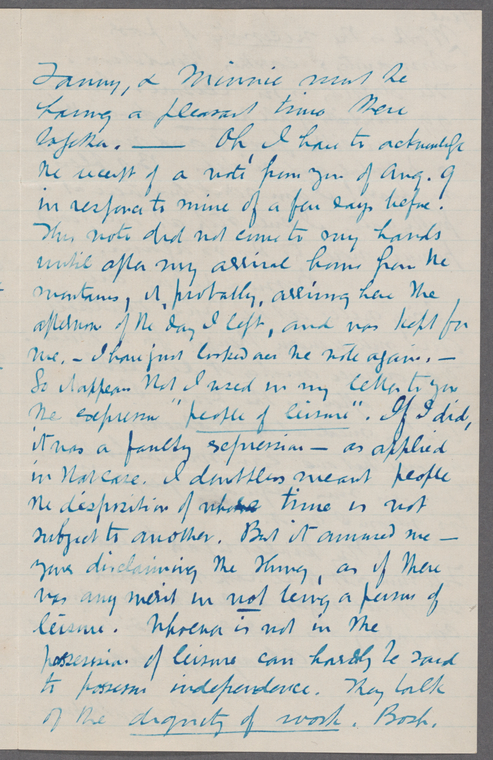 Fanny, & Minnie must be
having a pleasant time there
together. —— Oh, I have to acknowledge
the receipt of a note from you of Aug. 9
in response to mine of a few days before.
This note did not come to my hands
until after my arrival home from the
mountains, it, probably, arriving here the
afternoon of the day I left, and was kept for
me. — I have just looked over the note again. —
So it appears that I used in my letter to you
the expression "people of leisure". If I did,
it was a faulty expression — as applied
in that case. I doubtless meant people
the disposition of whose time is not
subject to another. But it amused me —
your disclaiming the thing, as if there
was any merit in not being a person of
leisure. Whoever is not in the
possession of leisure can hardly be said
to possess independence. They talk
of the dignity of work. Bosh.